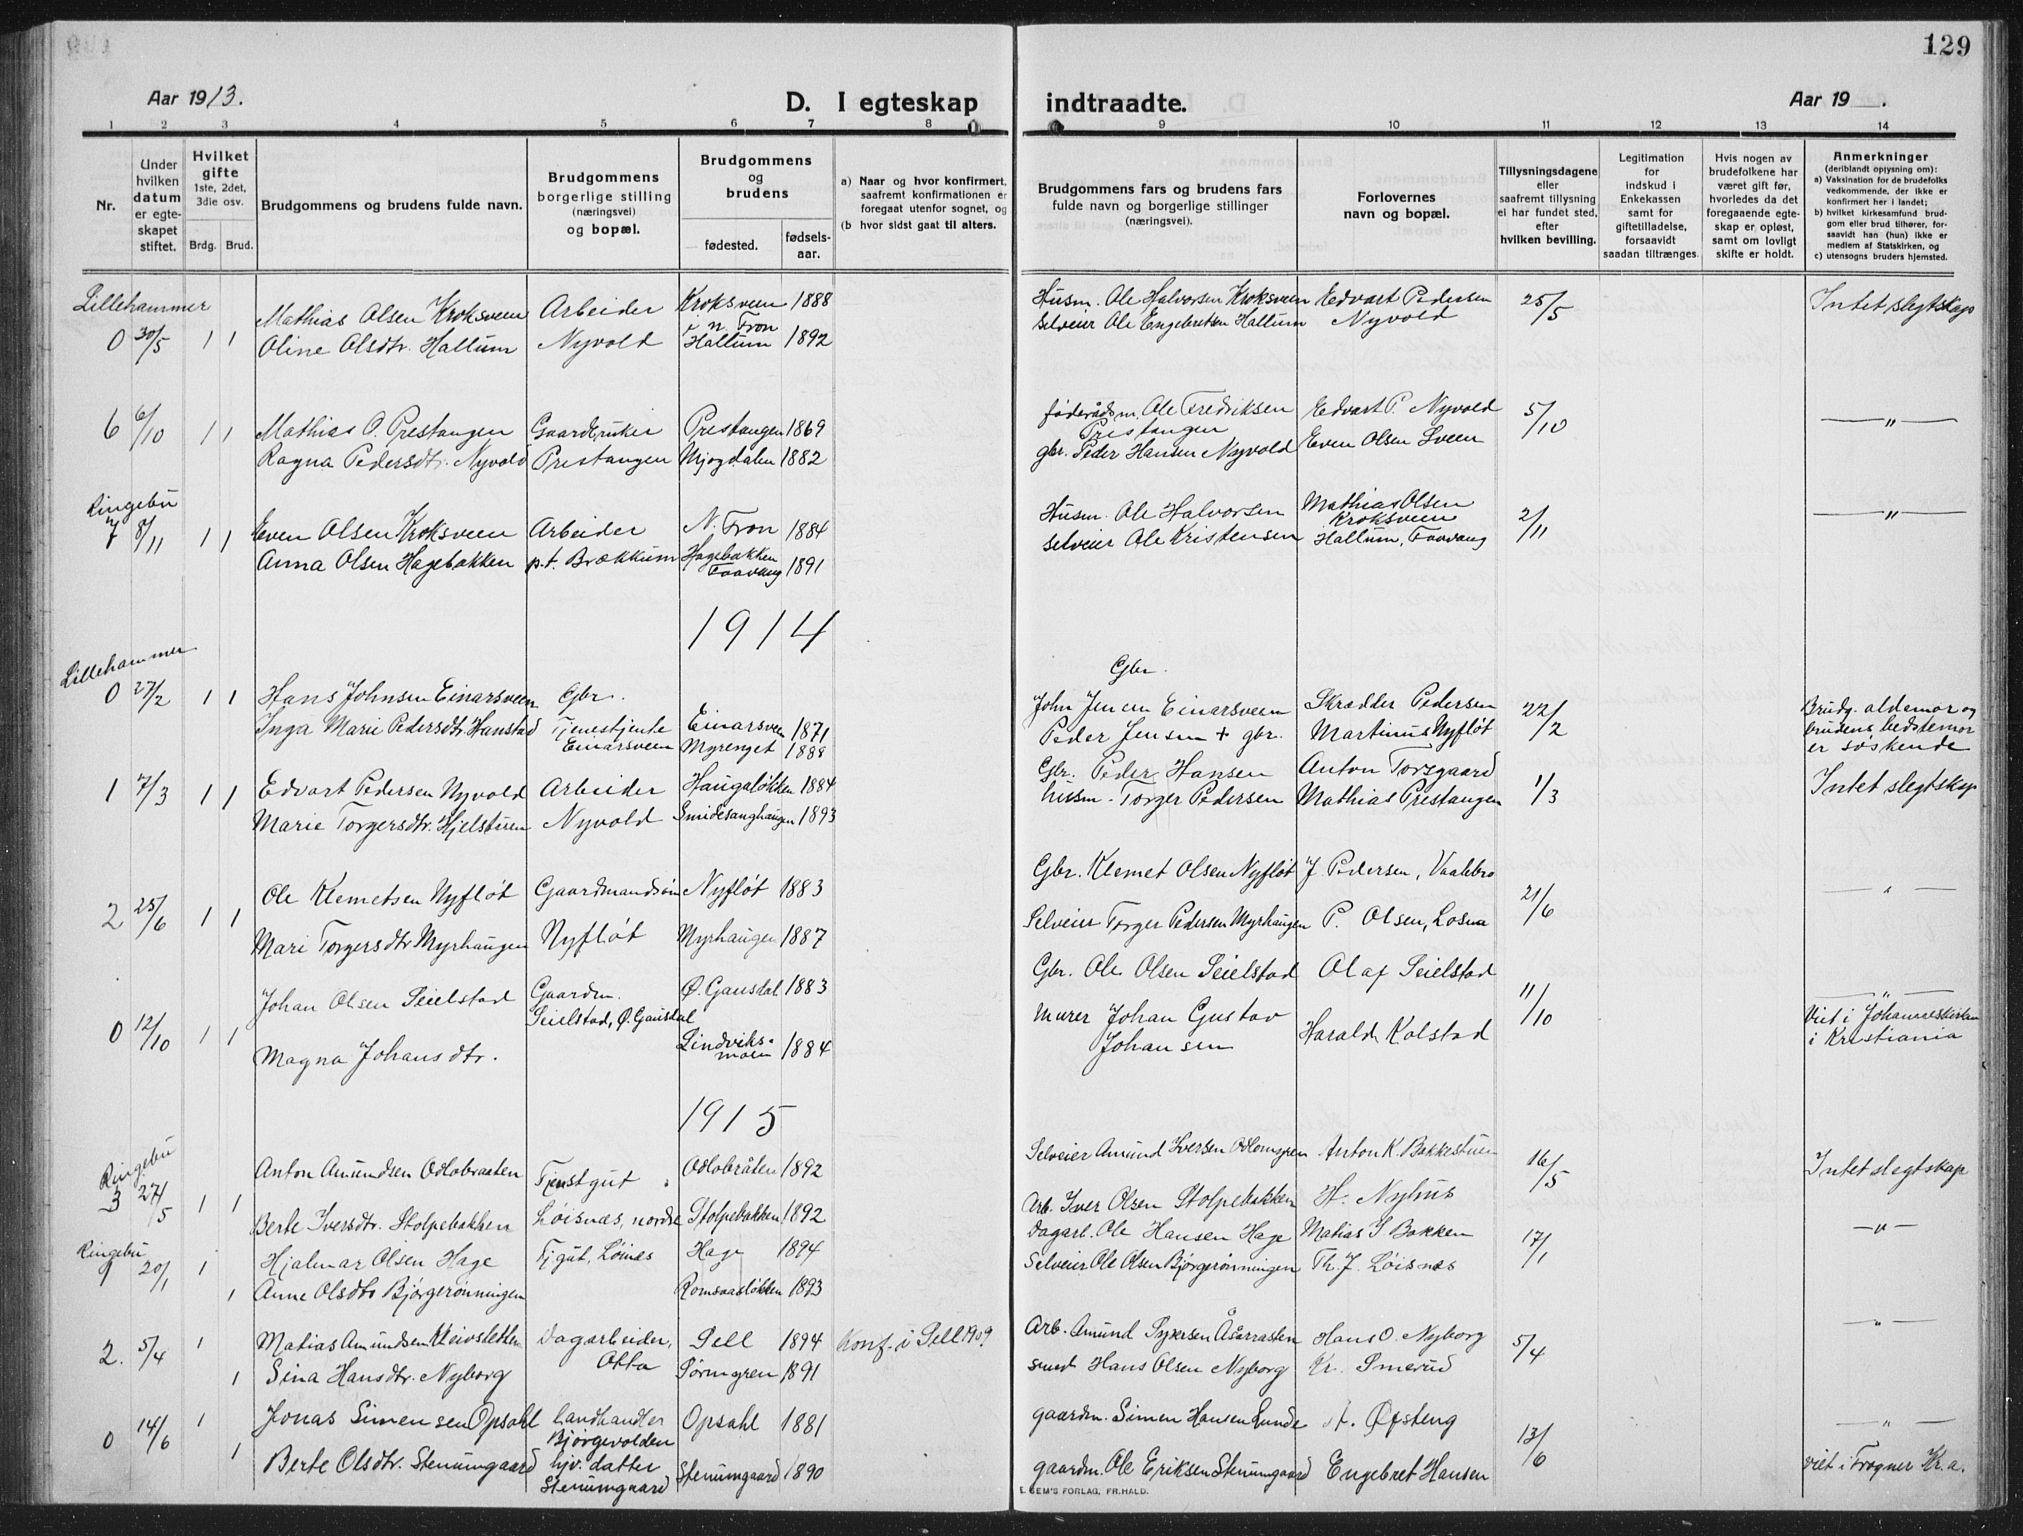 129
Aar 1913.
D. I egteskap indtraadte.
Aar 19 .
1 2 3 4 5 6 7 8 9 10 11 12 13 14
Nr.
Under
hvilken
datum
er egte-
skapet
stiftet.
Hvilket
gifte
1ste, 2det,
3die osv.
Brdg. Brud.
Brudgommens og brudens fulde navn.
Brudgommens
borgerlige stilling
(næringsvei)
og bopæl.
Brudgommens
og
brudens
fødested.
fødsels-
aar.
a) Naar og hvor konfirmert,
saafremt konfirmationen er
foregaat utenfor sognet, og
(b hvor sidst gaat til alters.
Brudgommens fars og brudens fars
fulde navn og borgerlige stillinger
(næringsvei).
Forlovernes
navn og bopæl.
Tillysningsdagene
eller
saafremt tillysning
ei har fundet sted,
efter
hvilken bevilling.
Legitimation
for
indskud i
Enkekassen
samt for
giftetilladelse,
forsaavidt
saadan tiltrænges.
Hvis nogen av
brudefolkene har
været gift før,
hvorledes da det
foregaaende egte-
skap er opløst,
samt om lovligt
skifte er holdt.
Anmerkninger
(deriblandt opjysning om):
a) Vaksination for de brudefolks
vedkommende, der ikke er
konfirmert her i landet;
b) hvilket kirkesamfund brud-
gom eller brud tilhører, for-
saavidt han (hun) ikke er
medlem af Statskirken, og
c) utensogns bruders hjemsted.
Lillehammer
Mathias Olsen Kroksveen Arbeider Kroksveen 1888 Husm. Ole Halvorsen Kroksveen Edvart Pedersen 25/5 Intet slegtskap
n. Fron
0 30/5 1 1 Oline Olsdtr. Hallum Nyvold Hallum 1892 Selveier Ole Engebretsen Hallum Nyvold
6 6/10 1 1 Mathias O. Prestangen Gaardbruker Prestangen 1869 føderådsm. Ole Fredriksen Prestangen Edvart P. Nyvold 5/10 — " —
Ragna Pedersdtr. Nyvold Prestangen Mjogdalen 1882 gbr. Peder Hansen Nyvold Even Olsen Sveen
Ringebu
7 8/11 1 1 Even Olsen Kroksveen Arbeider N. Fron 1884 Husm. Ole Halvorsen Mathias Olsen Kroksveen 2/11 — " —
Anna Olsen Hagebakken p.t. Brækkum Hagebakken Faavang 1891 Selveier Ole Kristensen Hallum, Faavang
1914
Lillehammer
0 27/2 1 1 Hans Johnsen Einarsveen Gbr. Einarsveen 1871 Gbr. John Jensen Einarsveen Skrædder Pedersen 22/2 Brudg. oldemor og
Inga Marie Pedersdtr. Hanstad Tjenestjente Einarsveen Myrenget 1888 Peder Jensen + gbr. Martinus Nyfløt brudens bedstemor
er søskende
1 7/3 1 1 Edvart Pedersen Nyvold Arbeider Haugaløkken 1884 Gbr. Peder Hansen Anton Torsgaard 1/3 Intet slegtskap
Marie Torgersdtr. Hjelstuen Nyvold Smidesanghaugen 1893 husm. Torger Pedersen Mathias Prestangen
2 25/6 1 1 Ole Klemetsen Nyfløt Gaardmandssøn Nyfløt 1883 Gbr. Klemet Olsen Nyfløt J. Pedersen, Vaalebro 21/6 — " —
Mari Torgersdtr Myrhaugen Nyfløt Myrhaugen 1887 Selveier Torger Pedersen Myrhaugen P. Olsen, Losna
0 12/10 1 1 Johan Olsen Seielstad Gaardm. Seielstad, Ø. Gausdal Ø. Gausdal 1883 Gbr. Ole Olsen Seielstad Olaf Seielstad 11/10 — " —
Magna Johansdtr. Lindviksmoen 1884 Murer Johan Gustav Johansen Harald Kolstad Viet i Johanneskirken
i Kristiania
1915
Ringebu
3 27/5 1 1 Anton Amundsen Odlobraaten Tjenstgut Odlobråten 1892 Selveier Amund Iversen Anton K. Bakkestuen 16/5 Intet slegtskap
Berte Iversdtr. Stolpebakken Løisnæs, nordre Stolpebakken 1892 Arb. Iver Olsen Stolpebakken H. Nyhus
Ringebu
1 20/1 1 Hjalmar Olsen Hage Tjgut, Løisnes Hage 1894 Dagarb. Ole Hansen Hage Matias J Bakken 17/1 — " —
1 Anne Olsdtr Bjørgerønningen Romsaasløkken 1893 Selveier Ole Olsen Bjørgerønningen Th. J. Løisnæs
2. 5/4 1 Matias Amundsen Kleivsletten Dagarbeider, Otta Sell 1894 Konf. i Sell 1909 Arb. Amund Hans O. Nyborg 5/4 — " —
1 Sina Hansdtr. Nyborg Sørmgren 1891 smed Hans Olsen Nyborg Kr. Smerud
0 14/6 1 Jonas Simensen Opsahl landhandler Bjørgevolden Opsahl 1881 gaardm. Simen Hansen Lunde Øfsteng 13/6 — " —
1 Berte Olsdtr. Stenumgaard hjv. datter Stenumgaard Stenumgaard 1890 gaardm. Ole Eriksen Stenumgaard Engebret Hansen viet i Frogner Kr.a.
E. SEM'S FORLAG, FR.HALD.